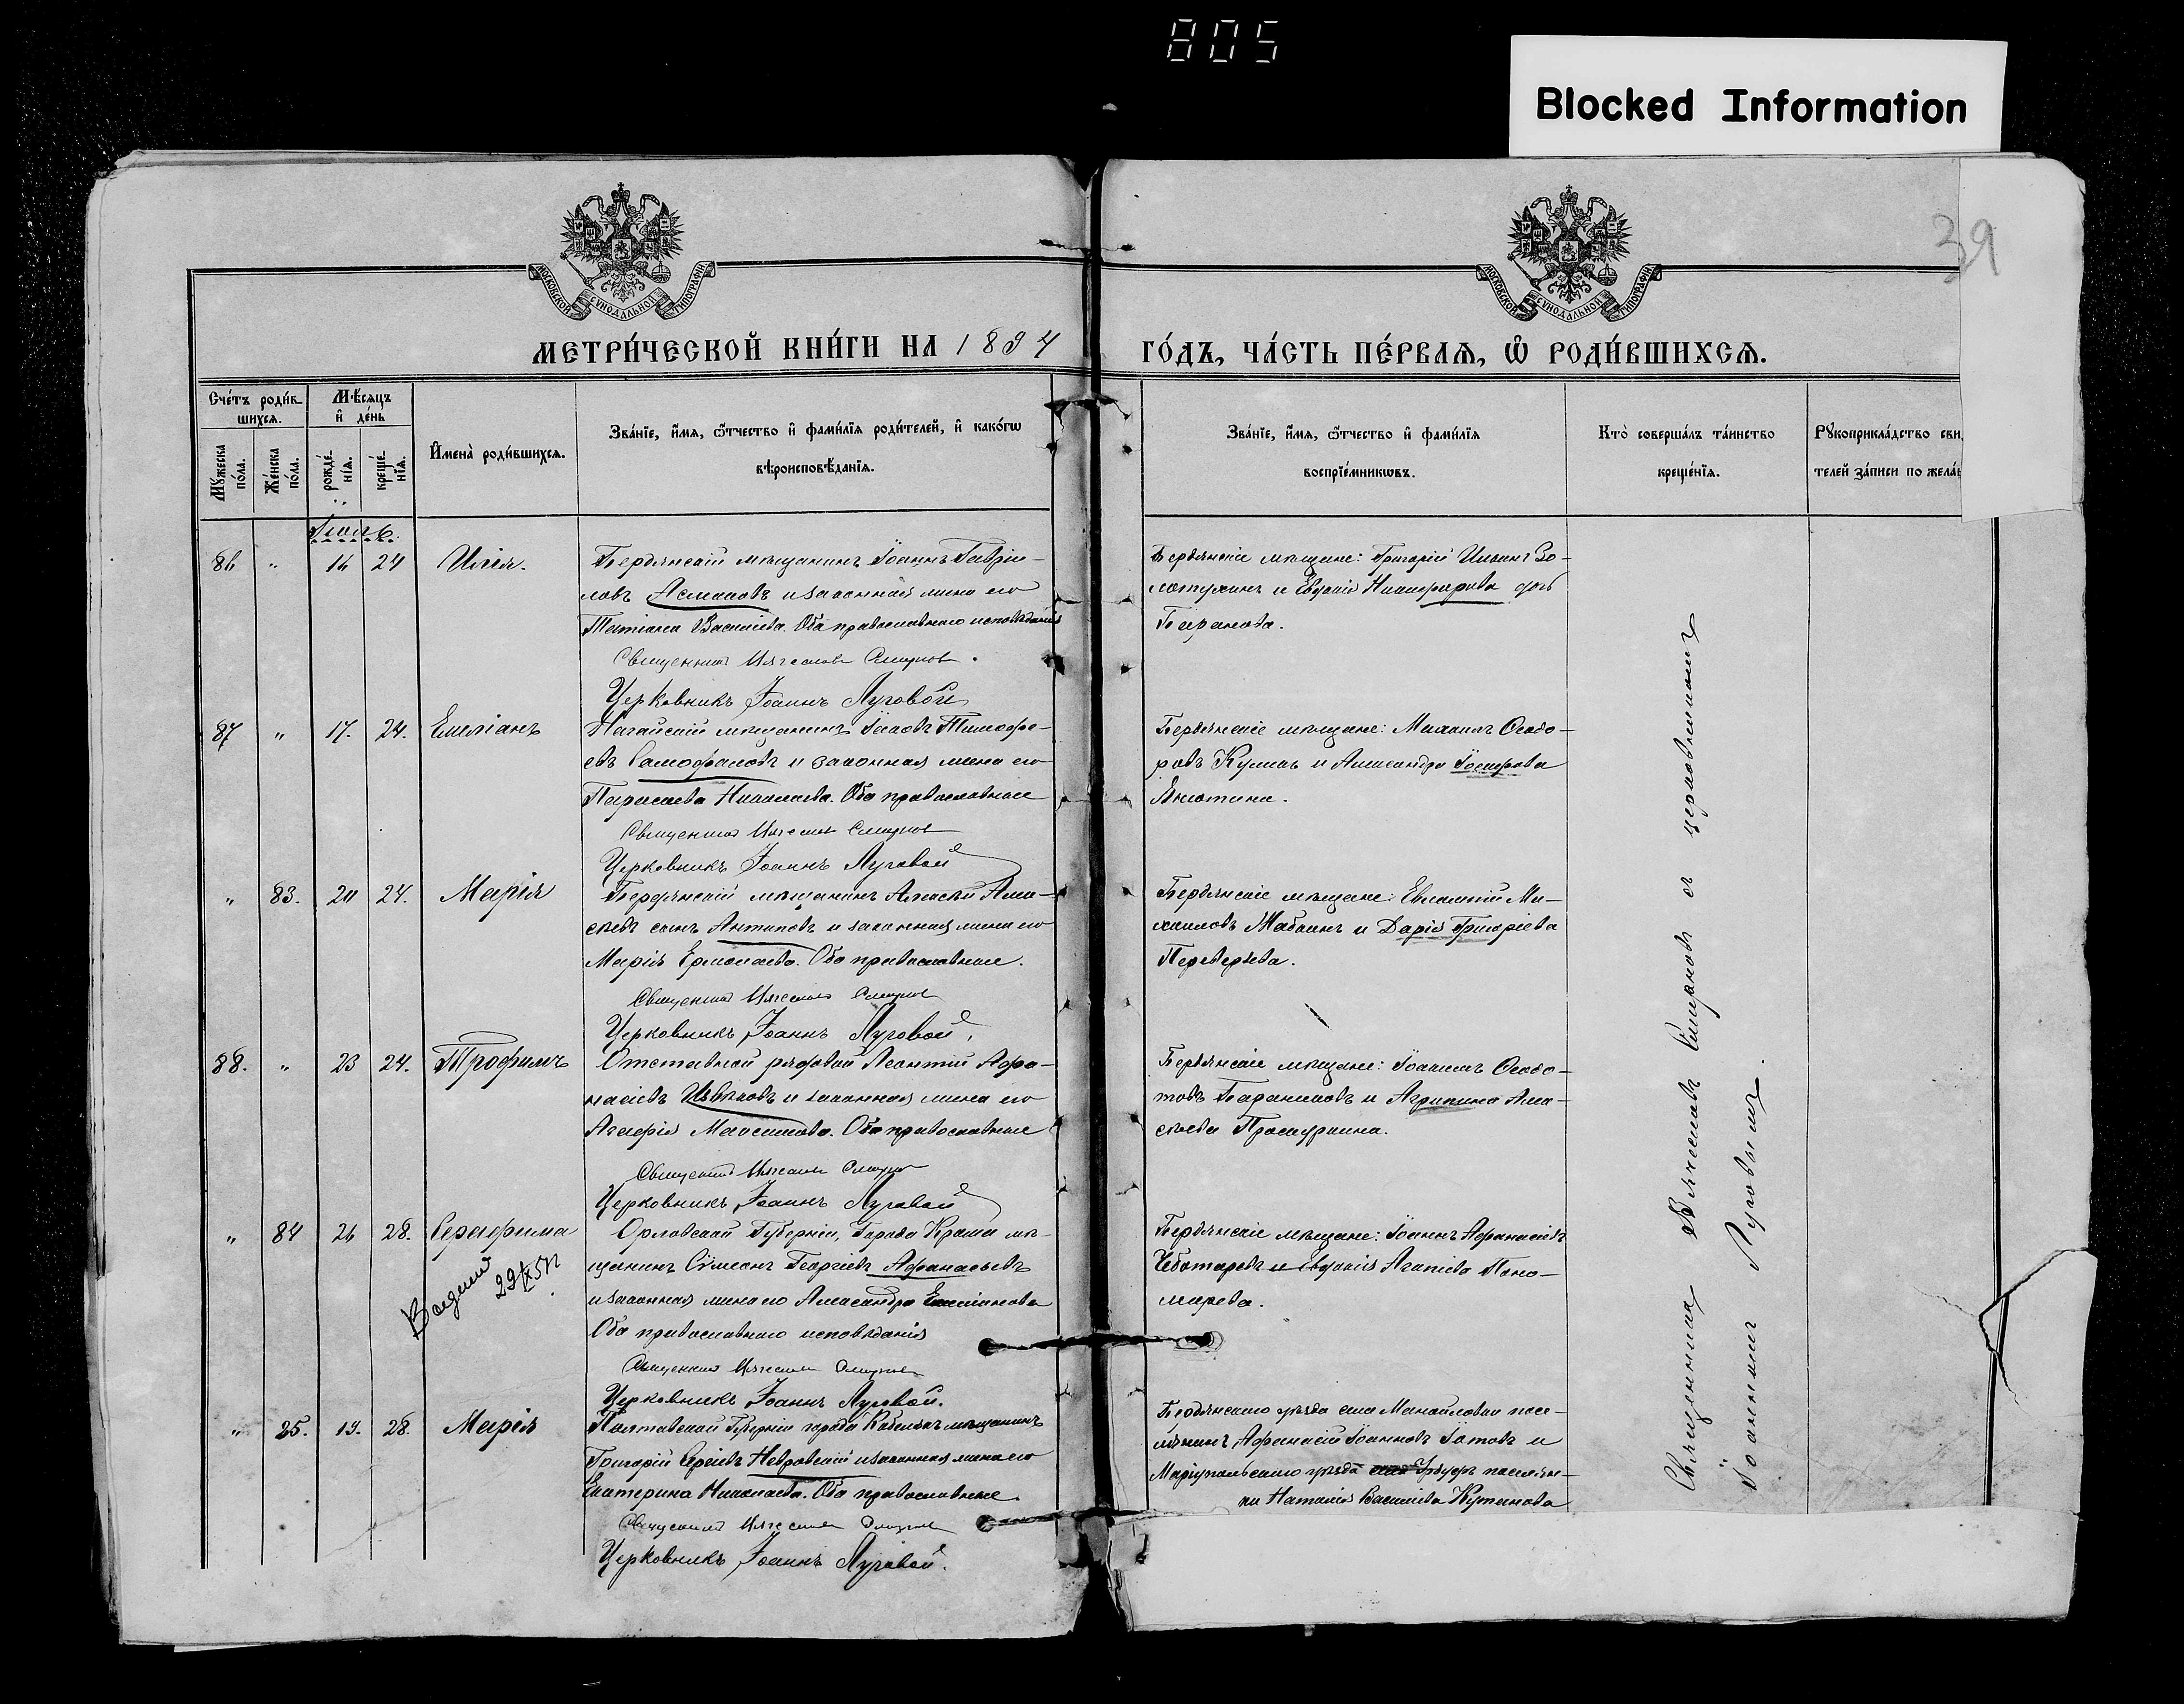 805
Blocked Information
39
МОСКОВСКОЙ СѴНОДАЛЬНОЙ ТИПОГРАФІИ
МОСКОВСКОЙ СѴНОДАЛЬНОЙ ТИПОГРАФІИ
МЕТРИ́ЧЕСКОЙ КНИ́ГИ НА 1894 ГО́ДЪ, ЧА́СТЬ ПЕ́РВАЯ, Ѡ҆ РОДИ́ВШИХСЯ.
Сче́тъ роди́в-
шихся.
Му́жеска по́ла.
Же́нска по́ла.
Мѣ́сяцъ
и҆ де́нь
рожде́нїя.
креще́нїя.
И҆мена̀ роди́вшихся.
Зва́нїе, и҆́мя, ѻ҆́тчество и҆ фами́лїя роди́телей, и҆ како́гѡ
вѣроисповѣ́данїя.
Зва́нїе, и҆́мя, ѻ҆́тчество и҆ фами́лїя
воспрїе́мникѡвъ.
Кто̀ соверша́лъ та́инство
креще́нїя.
Рꙋкоприкла́дство сви
телей за́писи по жела́
Іюль
86 " 16 24 Илія.
Бердянскій мѣщанинъ Іоаннъ Гаврі-
ловъ и законная жена его
Татіана Василіева. Оба православнаго исповѣданія
Священникъ Вячеславъ Смирнов.
Церковникъ Іоаннъ Луговой
Бердянскіе мѣщане: Григорій Зо-
лотухинъ и Евдокія Никифорова дочь
Баранова.
87 " 17. 24. Емиліанъ
Ногайскій мѣщанинъ Іаковъ Тимофе-
евъ Самофаловъ и законная жена его
Параскева Николаева. Оба православные
Священникъ Вячеслав Смирнов
Церковникъ Іоаннъ Луговой
Бердянскіе мѣщане: Михаилъ Ѳеодо-
ровъ и Александра Іосифова
" 83. 20 24. Марія
Бердянскій мѣщанинъ Алексѣй Алек-
сѣевъ сынъ Антиповъ и законная жена его
Марія Ермолаева. Оба православные.
Священникъ Вячеслав Смирнов
Церковникъ Іоаннъ Луговой
Бердянскіе мѣщане: Евлампій Ми-
хаиловъ и Дарія Григоріева
88. " 23 24. Трофимъ
Отставной рядовой Леонтій Афа-
насіевъ и законная жена его
Агафія Максимова. Оба православные
Священникъ Вячеслав Смирнов
Церковникъ Іоаннъ Луговой
Бердянскіе мѣщане: Іоакимъ Ѳеодо-
товъ Баранниковъ и Агрипина Алек-
сѣева Проскурина.
" 84 26 28. Серафима
29/IX 51г.
Орловской Губерніи, Города Кромъ мѣ-
щанинъ Сѵмеонъ Георгіевъ Афанасьевъ
и законная жена его Александра Емиліанова
Оба православнаго исповѣданія
Священникъ Вячеслав Смирнов
Церковникъ Іоаннъ Луговой.
Бердянскіе мѣщане: Іоаннъ Афанасіевъ
Чеботаревъ и Евдокія Агапіева Поно-
марева.
" 25. 19. 28. Марія
Полтавской Губерніи города Кобелякъ мѣщанинъ
Григорій Сергіевъ и законная жена его
Екатерина Николаева. Оба православные.
Священникъ Вячеслав Смирнов
Церковникъ Іоаннъ Луговой.
Бердянскаго уѣзда села Мануиловки посе-
лянинъ Афанасій Іоанновъ и
Маріупольскаго уѣзда поселян-
ка Наталія Василіева
Священникъ Вячеславъ Смирновъ съ церковникомъ
Іоанномъ Луговымъ.